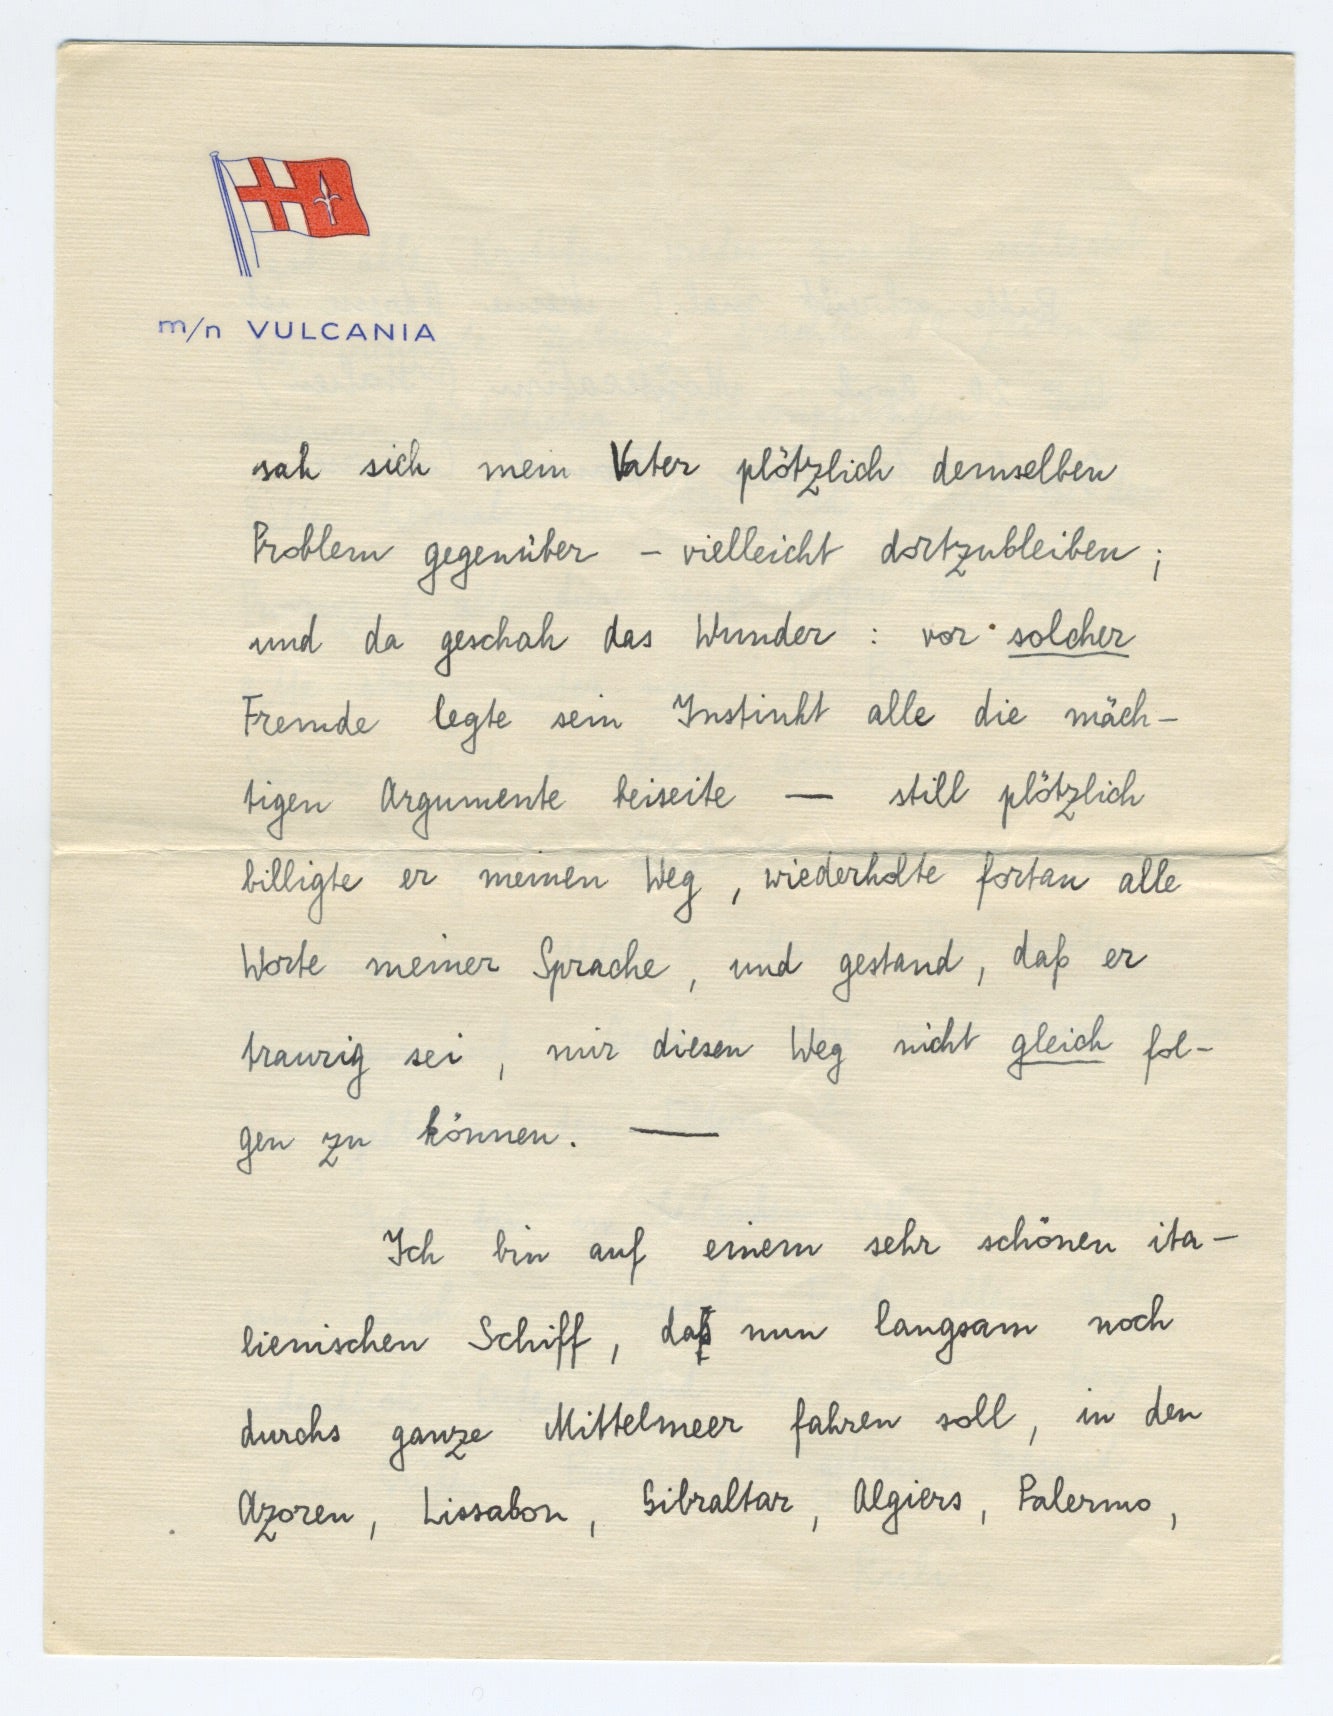 m/n VULCANIA
sah sich mein Vater plötzlich demselben
Problem gegenüber – vielleicht dortzubleiben ;
und da geschah das Wunder : vor solcher
Fremde legte sein Instinkt alle die mäch-
tigen Argumente beiseite — still plötzlich
billigte er meinen Weg , wiederholte fortan alle
Worte meiner Sprache , und gestand , daß er
traurig sei , mir diesen Weg nicht gleich fol-
gen zu können. —
Ich bin auf einem sehr schönen ita-
lienischen Schiff , das nun langsam noch
durchs ganze Mittelmeer fahren soll , in den
Azoren , Lissabon , Gibraltar , Algiers , Palermo ,